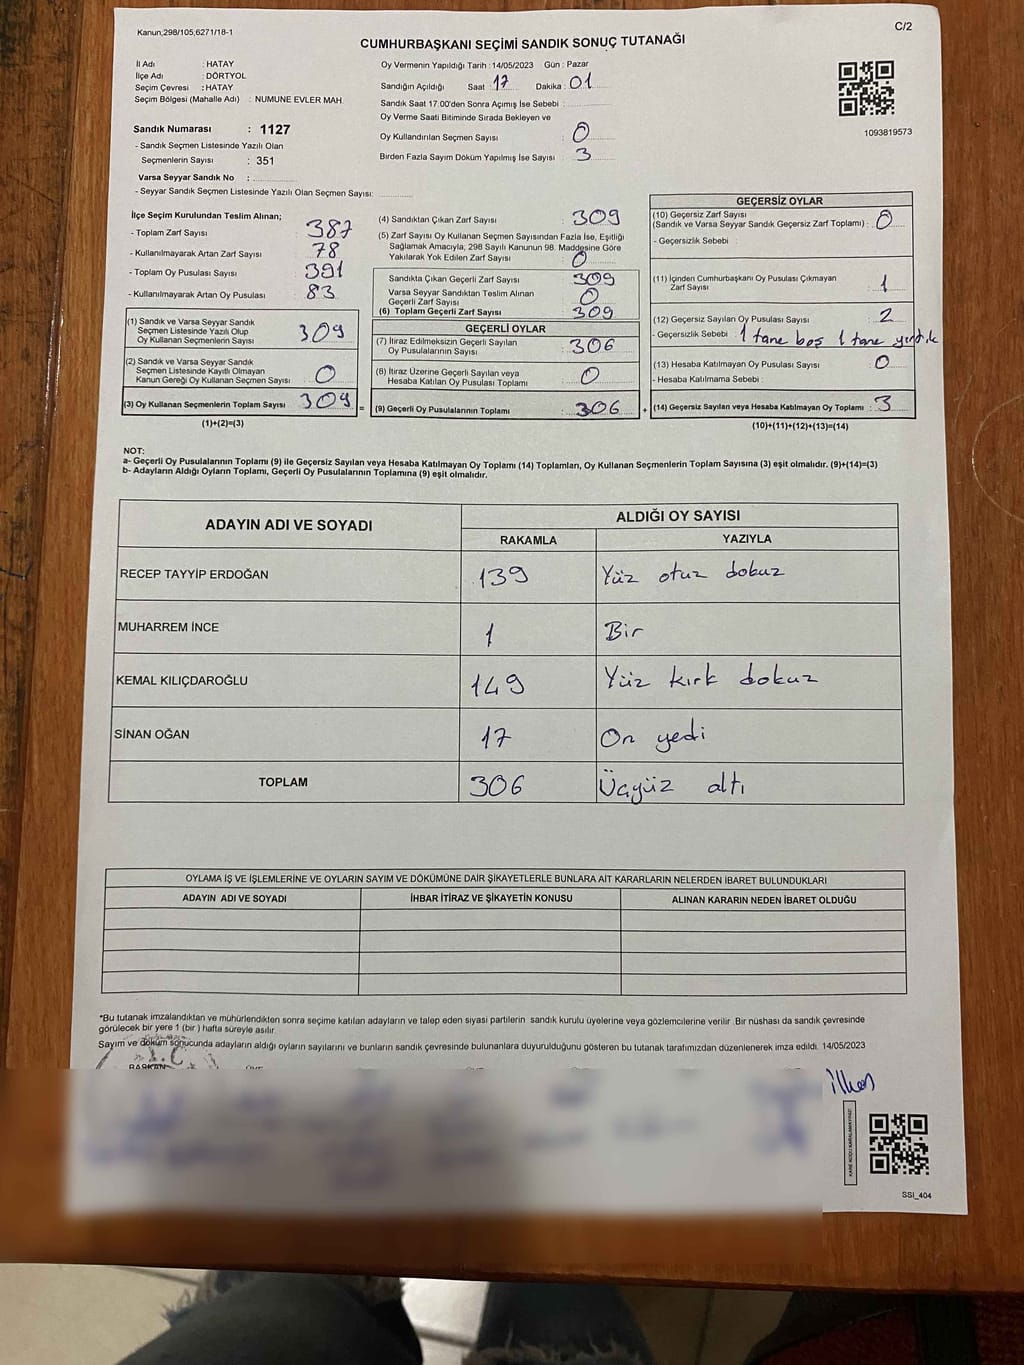 Kanun,298/105,6271/18-1
C/2
CUMHURBAŞKANI SEÇİMİ SANDIK SONUÇ TUTANAĞI
İl Adı : HATAY
İlçe Adı : DÖRTYOL
Seçim Çevresi : HATAY
Seçim Bölgesi (Mahalle Adı) : NUMUNE EVLER MAH.
Sandık Numarası : 1127
- Sandık Seçmen Listesinde Yazılı Olan
Seçmenlerin Sayısı : 351
Varsa Seyyar Sandık No :
- Seyyar Sandık Seçmen Listesinde Yazılı Olan Seçmen Sayısı:
Oy Vermenin Yapıldığı Tarih : 14/05/2023 Gün : Pazar
Sandığın Açıldığı Saat : 17 Dakika : 01
Sandık Saat 17:00'den Sonra Açımış İse Sebebi :
Oy Verme Saati Bitiminde Sırada Bekleyen ve
Oy Kullandırılan Seçmen Sayısı : 0
Birden Fazla Sayım Döküm Yapılmış İse Sayısı : 3
1093819573
İlçe Seçim Kurulundan Teslim Alınan;
- Toplam Zarf Sayısı : 387
- Kullanılmayarak Artan Zarf Sayısı : 78
- Toplam Oy Pusulası Sayısı : 391
- Kullanılmayarak Artan Oy Pusulası : 83
(1) Sandık ve Varsa Seyyar Sandık
Seçmen Listesinde Yazılı Olup
Oy Kullanan Seçmenlerin Sayısı : 309
(2) Sandık ve Varsa Seyyar Sandık
Seçmen Listesinde Kayıtlı Olmayan
Kanun Gereği Oy Kullanan Seçmen Sayısı : 0
(3) Oy Kullanan Seçmenlerin Toplam Sayısı : 309 =
(1)+(2)=(3)
(4) Sandıktan Çıkan Zarf Sayısı : 309
(5) Zarf Sayısı Oy Kullanan Seçmen Sayısından Fazla İse, Eşitliği
Sağlamak Amacıyla, 298 Sayılı Kanunun 98. Maddesine Göre
Yakılarak Yok Edilen Zarf Sayısı : 0
Sandıkta Çıkan Geçerli Zarf Sayısı : 309
Varsa Seyyar Sandıktan Teslim Alınan
Geçerli Zarf Sayısı : 0
(6) Toplam Geçerli Zarf Sayısı : 309
GEÇERLİ OYLAR
(7) İtiraz Edilmeksizin Geçerli Sayılan
Oy Pusulalarının Sayısı : 306
(8) İtiraz Üzerine Geçerli Sayılan veya
Hesaba Katılan Oy Pusulası Toplamı : 0
(9) Geçerli Oy Pusulalarının Toplamı : 306 +
GEÇERSİZ OYLAR
(10) Geçersiz Zarf Sayısı
(Sandık ve Varsa Seyyar Sandık Geçersiz Zarf Toplamı) : 0
- Geçersizlik Sebebi :
(11) İçinden Cumhurbaşkanı Oy Pusulası Çıkmayan
Zarf Sayısı : 1
(12) Geçersiz Sayılan Oy Pusulası Sayısı : 2
- Geçersizlik Sebebi : 1 tane boş 1 tane yırtık
(13) Hesaba Katılmayan Oy Pusulası Sayısı : 0
- Hesaba Katılmama Sebebi :
(14) Geçersiz Sayılan veya Hesaba Katılmayan Oy Toplamı : 3
(10)+(11)+(12)+(13)=(14)
NOT:
a- Geçerli Oy Pusulalarının Toplamı (9) ile Geçersiz Sayılan veya Hesaba Katılmayan Oy Toplamı (14) Toplamları, Oy Kullanan Seçmenlerin Toplam Sayısına (3) eşit olmalıdır. (9)+(14)=(3)
b- Adayların Aldığı Oyların Toplamı, Geçerli Oy Pusulalarının Toplamına (9) eşit olmalıdır.
ADAYIN ADI VE SOYADI ALDIĞI OY SAYISI
RAKAMLA YAZIYLA
RECEP TAYYİP ERDOĞAN 139 Yüz otuz dokuz
MUHARREM İNCE 1 Bir
KEMAL KILIÇDAROĞLU 149 Yüz kırk dokuz
SİNAN OĞAN 17 On yedi
TOPLAM 306 Üçyüz altı
OYLAMA İŞ VE İŞLEMLERİNE VE OYLARIN SAYIM VE DÖKÜMÜNE DAİR ŞİKAYETLERLE BUNLARA AİT KARARLARIN NELERDEN İBARET BULUNDUKLARI
ADAYIN ADI VE SOYADI İHBAR İTİRAZ VE ŞİKAYETİN KONUSU ALINAN KARARIN NEDEN İBARET OLDUĞU
*Bu tutanak imzalandıktan ve mühürlendikten sonra seçime katılan adayların ve talep eden siyasi partilerin sandık kurulu üyelerine veya gözlemcilerine verilir .Bir nüshası da sandık çevresinde
görülecek bir yere 1 (bir ) hafta süreyle asılır.
Sayım ve döküm sonucunda adayların aldığı oyların sayılarını ve bunların sandık çevresinde bulunanlara duyurulduğunu gösteren bu tutanak tarafımızdan düzenlenerek imza edildi. 14/05/2023
T.C.
BAŞKAN
İlker
SSI_404